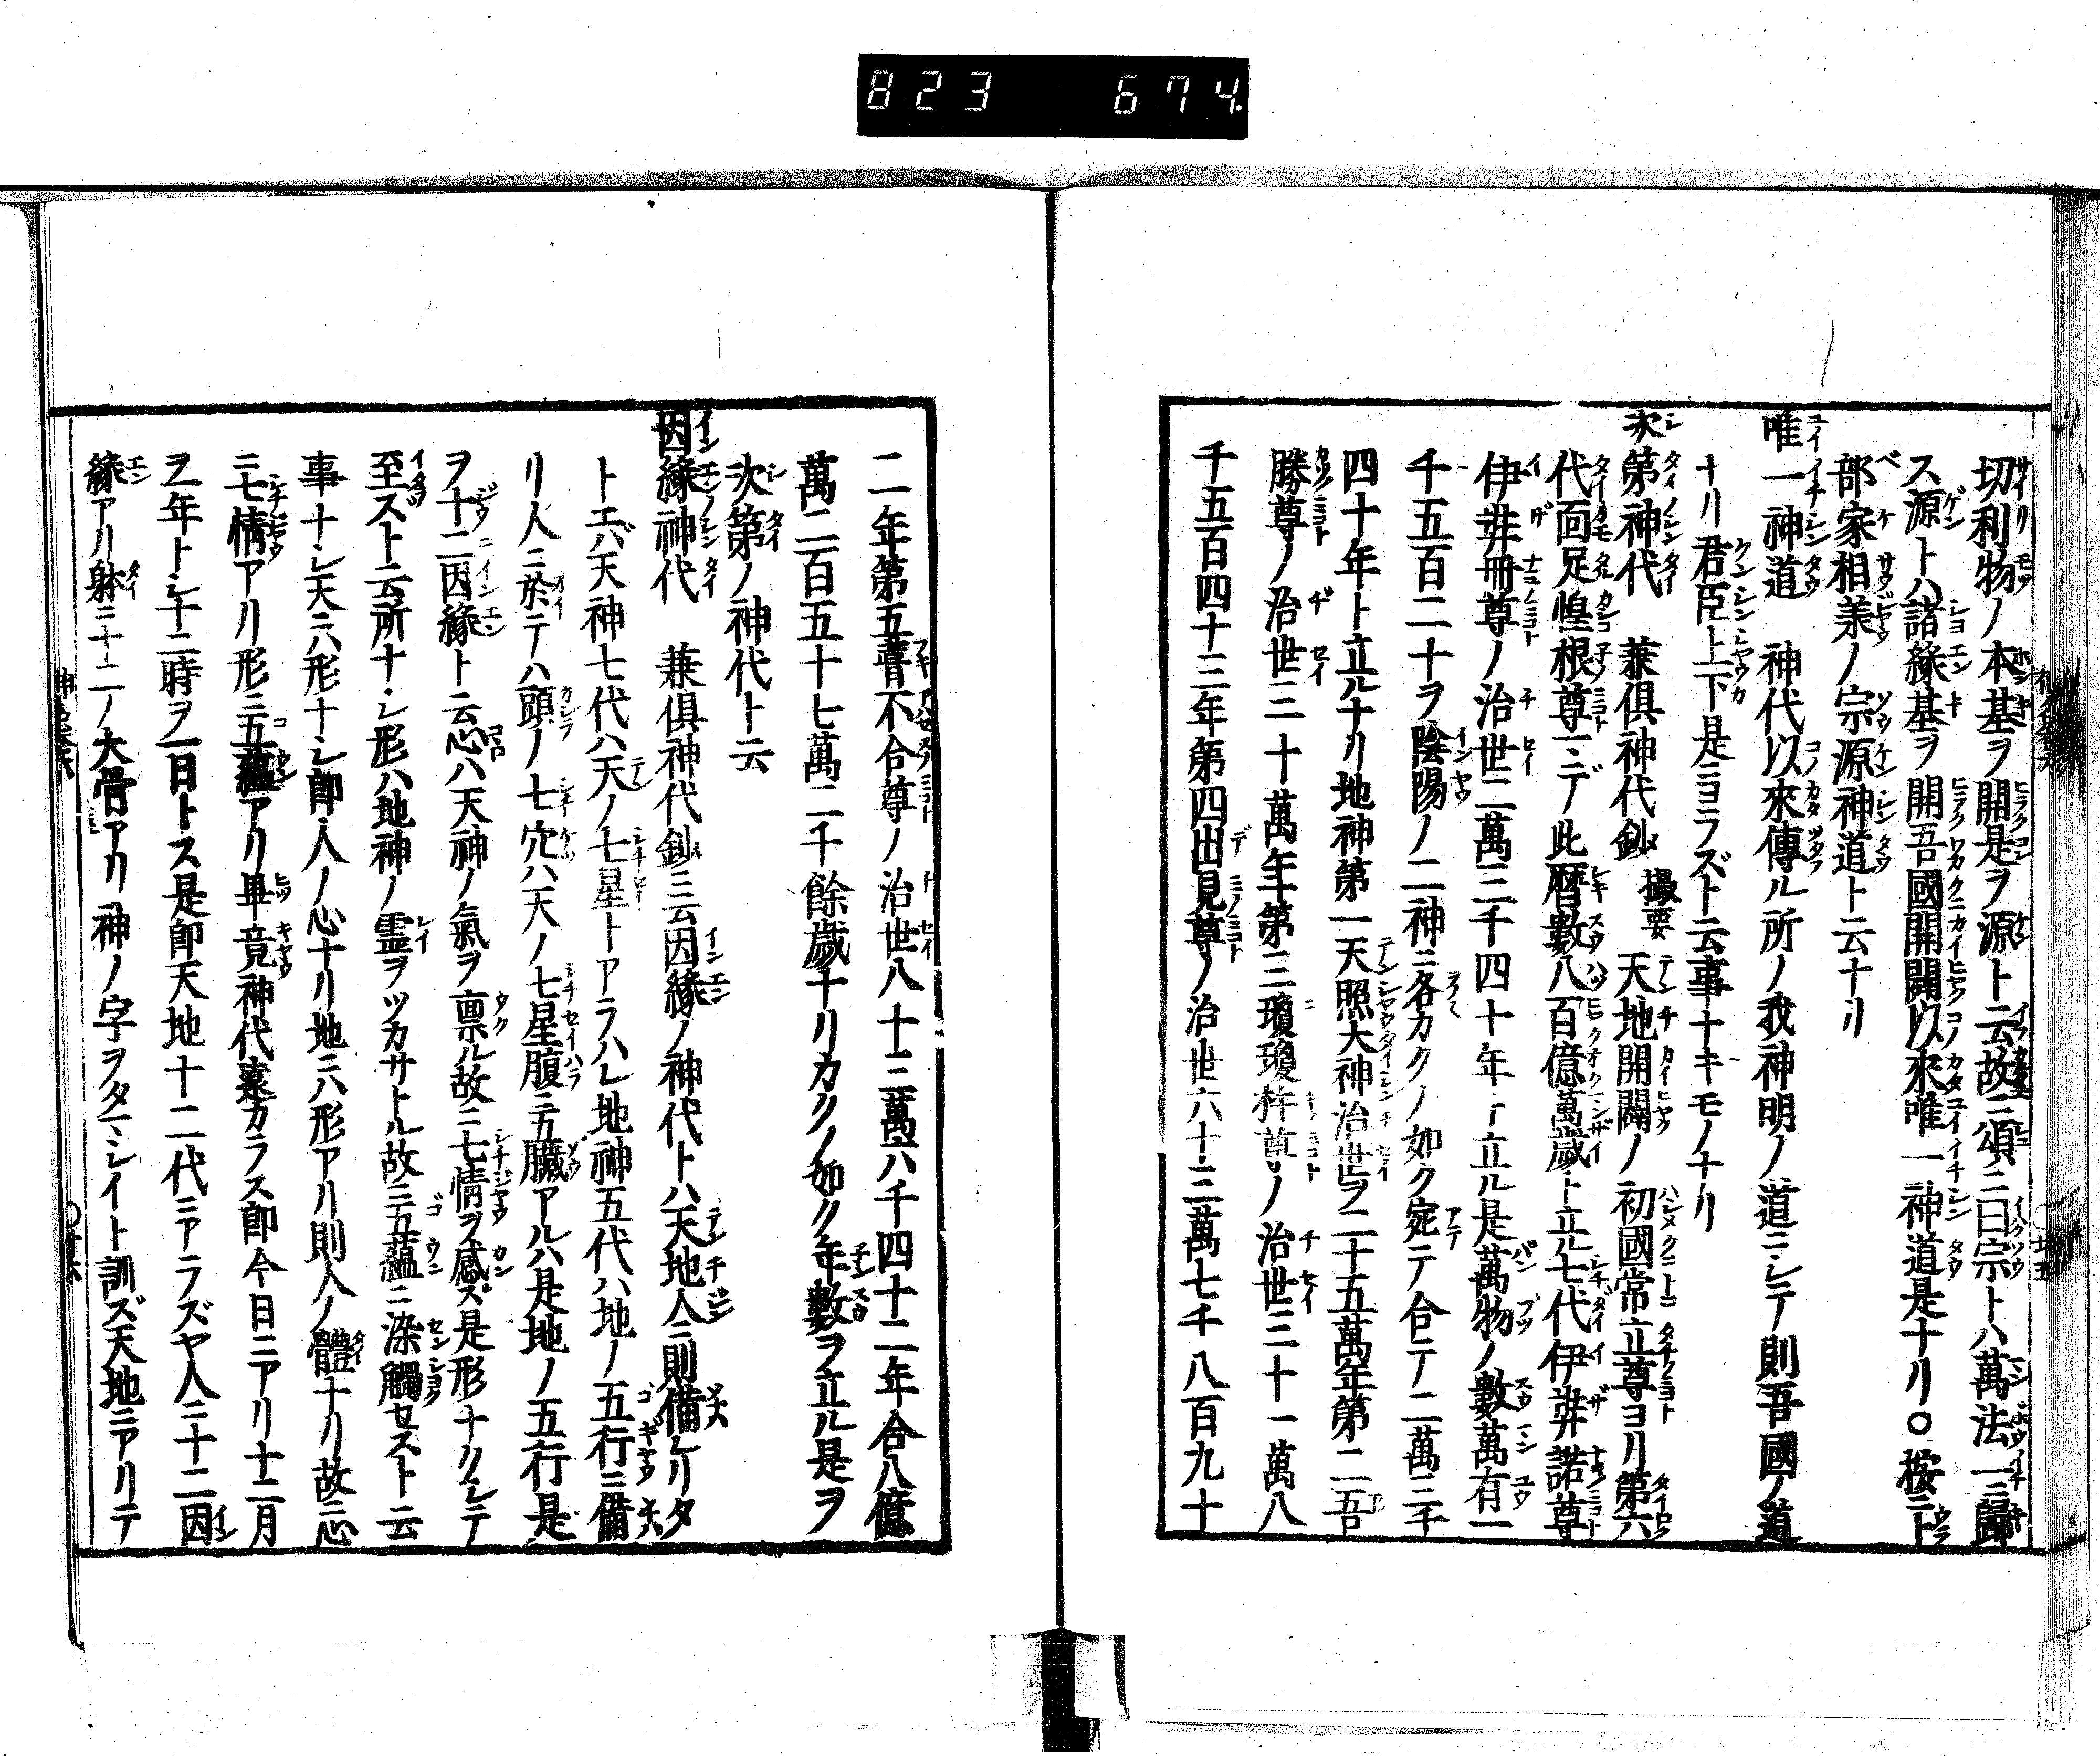 823 674.
切利物ノ本基ヲ開是ヲ源ト云故ニ頌ニ曰宗トハ萬法一ニ歸
ス源トハ諸緣基ヲ開吾國開闢以來唯一神道是ナリ○按ニト
部家相兼ノ宗源神道ト云ナリ
唯一神道 神代以來傳ル所ノ我神明ノ道ニシテ則吾國ノ道
ナリ君臣上下是ニヨラズト云事ナキモノナリ
次第神代 兼俱神代鈔撮要 天地開闢ノ初國常立尊ヨリ第六
代面足惶根尊ニデ此曆數八百億萬歲ト立ル七代伊弉諾尊
伊弉冊尊ノ治世二萬三千四十年ト立ル是萬物ノ數萬有一
千五百二十ヲ陰陽ノ二神ニ各カクノ如ク宛テ合テ二萬三千
四十年ト立ルナリ地神第一天照大神治世ヲ二十五萬年第二吾
勝尊ノ治世三十萬年第三瓊瓊杵尊ノ治世三十一萬八
千五百四十三年第四出見尊ノ治世六十三萬七千八百九十
二年第五葺不合尊ノ治世八十三萬六千四十二年合八億
萬二百五十七萬二千餘歲ナリカクノ如ク年數ヲ立ル是ヲ
次第ノ神代ト云
因緣神代 兼俱神代鈔ニ云因緣ノ神代トハ天地人ニ則備レリタ
トエバ天神七代ハ天ノ七星トアラハレ地神五代ハ地ノ五行ニ備
リ人ニ於テハ頭ノ七穴ハ天ノ七星腹ニ五臟アルハ是地ノ五行是
ヲ十二因緣ト云心ハ天神ノ氣ヲ稟ル故ニ七情ヲ感ズ是形ナクシテ
至ストニ云所ナシ形ハ地神ノ霊ヲツカサトル故ニ五蘊ニ染觸セスト云
事ナシ天ニハ形ナシ卽人ノ心ナリ地ニハ形アリ則人ノ體ナリ故ニ心
ニ七情アリ形ニ五蘊アリ畢竟神代遠カラス卽今日ニアリ十二月
ヲ一年トシ十二時ヲ一日トス是卽天地十二代ニアラズヤ人ニ十二因
緣アリ躰ニ十二ノ大骨アリ神ノ字ヲタマシイト訓ズ天地ニアリテ